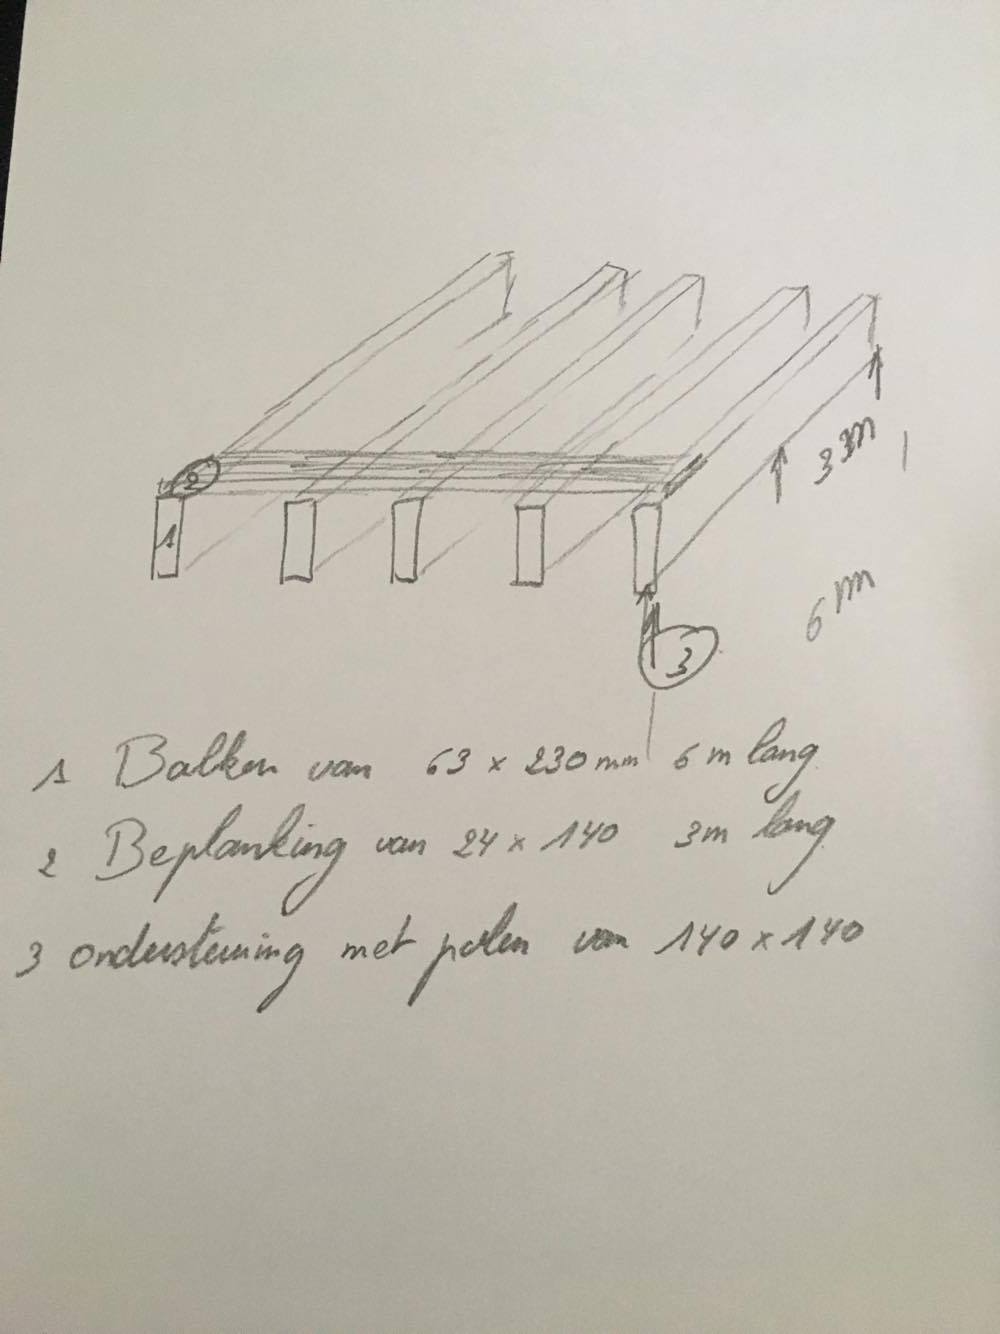 2
1
3 3m
6m
3
1 Balken van 63 x 230 mm 6 m lang
2 Beplanking van 24 x 140 3m lang
3 ondersteuning met palen van 140 x 140